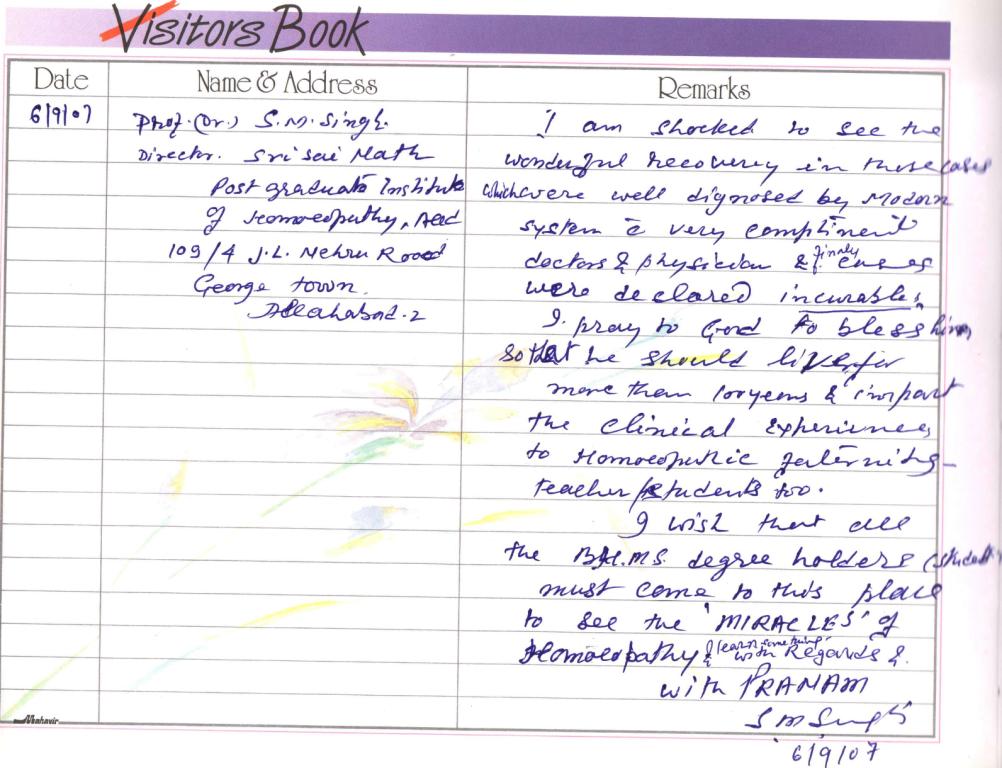 Visitors Book
Date
Name & Address
Remarks
6/9/07
Prof. (Dr.) S.M. Singh.
Director. Sri Sai Nath
Post graduate Institute
of Homoeopathy, Alld
109/4 J.L. Nehru Road
George town.
Allahabad-2
I am shocked to see the
wonderful recovery in those cases
which were well dignosed by Modern
system c̄ very compliment
doctors & physician & finaly cases
were declared incurables,
I. pray to God to bless him,
so that he should live for
more than 100 years & impart
the clinical experiences
to Homoeopathic faternity-
teacher/students too.
I wish that all
the B.H.M.S. degree holders (student
must come to this place
to see the 'MIRACLES' of
Homoeopathy & learn something with Regards &
with PRANAM
S M Singh
6/9/07
Mahavir